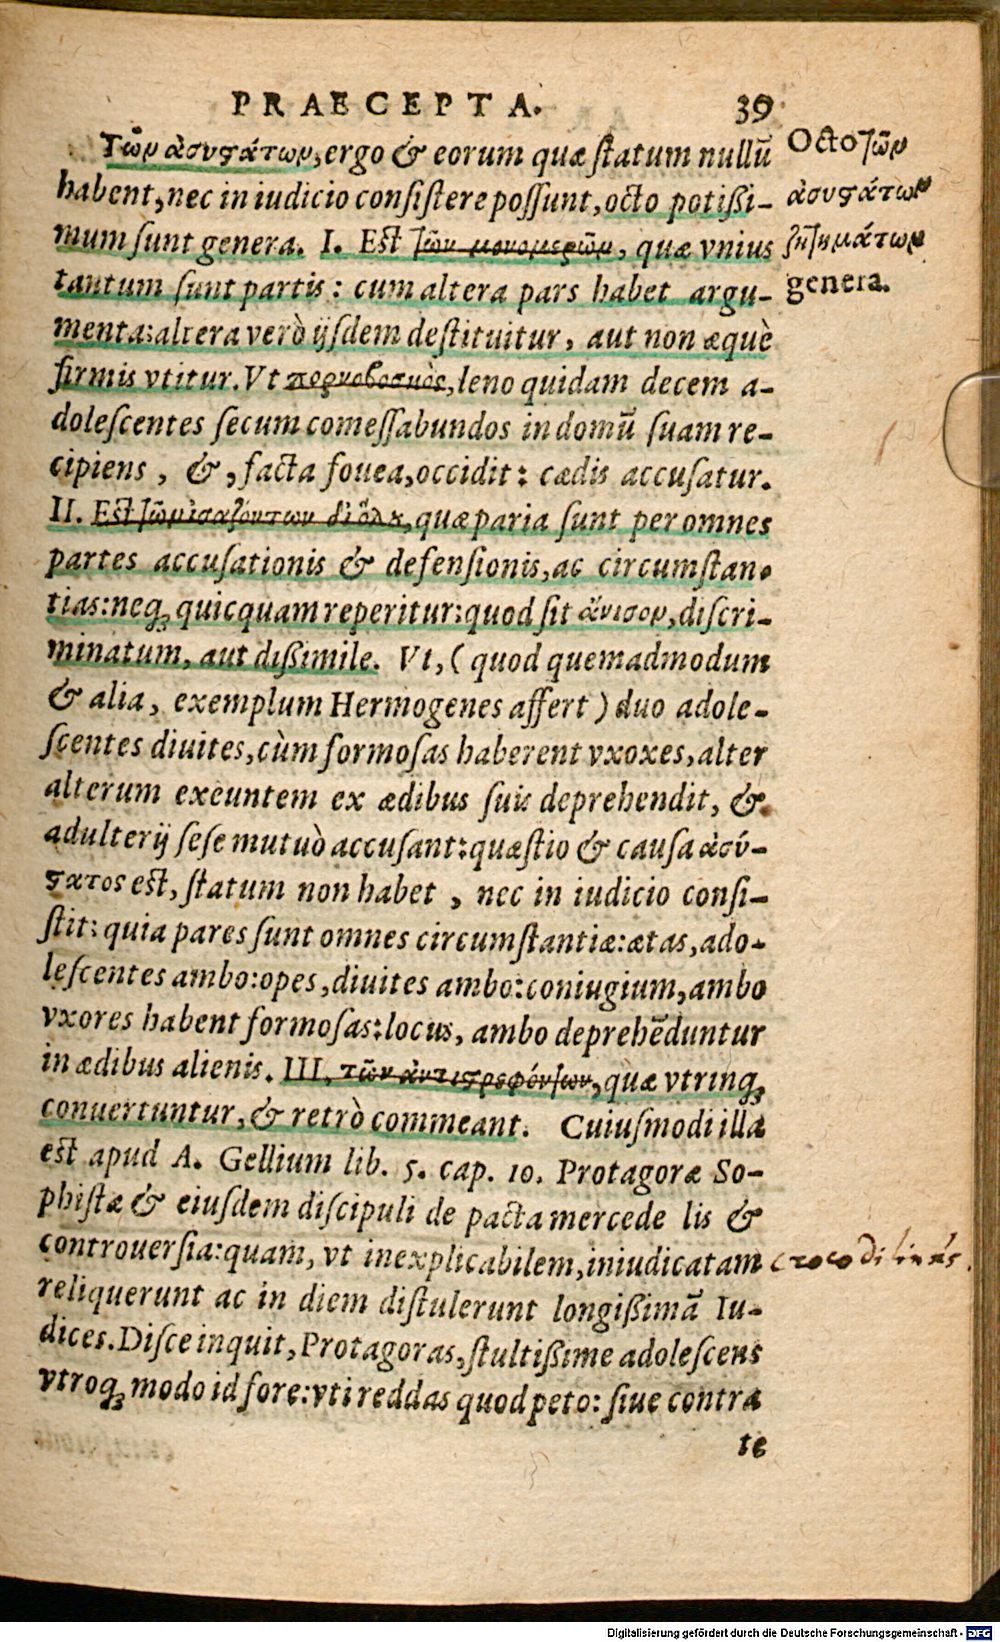 PRAECEPTA. 39
Τῶν ἀσυστάτων, ergo & eorum quæ ſtatum nullū
habent, nec in iudicio conſiſtere poſſunt, octo potißi-
mum ſunt genera. I. Eſt τῶν μονομερῶν, quæ vnius
tantum ſunt partis: cum altera pars habet argu-
menta: altera verò ijſdem deſtituitur, aut non æquè
firmis vtitur. Vt πορνοβοσκὸς, leno quidam decem a-
doleſcentes ſecum comeſſabundos in domū ſuam re-
cipiens, &, facta fouea, occidit: cædis accuſatur.
II. Eſt τῶν ἰσαζόντων δι' ὅλου, quæ paria ſunt per omnes
partes accuſationis & defenſionis, ac circumſtan-
tias: neq; quicquam reperitur: quod ſit ἄνισον, diſcri-
minatum, aut dißimile. Vt, (quod quemadmodum
& alia, exemplum Hermogenes affert) duo adole-
ſcentes diuites, cùm formoſas haberent vxoxes, alter
alterum exeuntem ex ædibus ſuis deprehendit, &
adulterij ſeſe mutuò accuſant: quæſtio & cauſa ἀσύ-
στατος eſt, ſtatum non habet, nec in iudicio conſi-
ſtit: quia pares ſunt omnes circumſtantiæ: ætas, ado-
leſcentes ambo: opes, diuites ambo: coniugium, ambo
vxores habent formoſas: locus, ambo deprehēduntur
in ædibus alienis. III. τῶν ἀντιστρεφόντων, quæ vtrinq;
conuertuntur, & retrò commeant. Cuiuſmodi illa
eſt apud A. Gellium lib. 5. cap. 10. Protagoræ So-
phiſtæ & eiuſdem diſcipuli de pacta mercede lis &
controuerſia: quam, vt inexplicabilem, iniudicatam
reliquerunt ac in diem diſtulerunt longißimā Iu-
dices. Diſce inquit, Protagoras, ſtultißime adoleſcens
vtroq; modo id fore: vti reddas quod peto: ſiue contra
te
Octo τῶν
ἀσυστάτων
ζητημάτων
genera.